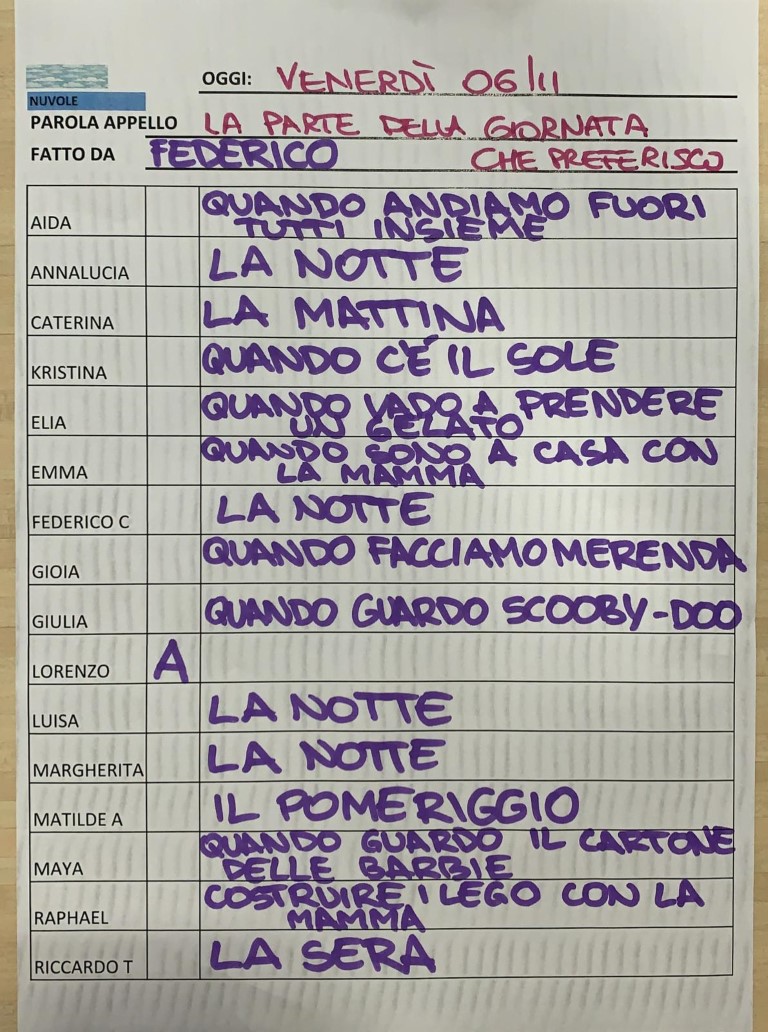 OGGI: VENERDÌ 06/11
NUVOLE
PAROLA APPELLO LA PARTE DELLA GIORNATA
FATTO DA FEDERICO CHE PREFERISCO
AIDA QUANDO ANDIAMO FUORI
TUTTI INSIEME
ANNALUCIA LA NOTTE
CATERINA LA MATTINA
KRISTINA QUANDO C'É IL SOLE
ELIA QUANDO VADO A PRENDERE
UN GELATO
EMMA QUANDO SONO A CASA CON
LA MAMMA
FEDERICO C LA NOTTE
GIOIA QUANDO FACCIAMO MERENDA
GIULIA QUANDO GUARDO SCOOBY-DOO
LORENZO A
LUISA LA NOTTE
MARGHERITA LA NOTTE
MATILDE A IL POMERIGGIO
MAYA QUANDO GUARDO IL CARTONE
DELLE BARBIE
RAPHAEL COSTRUIRE I LEGO CON LA
MAMMA
RICCARDO T LA SERA